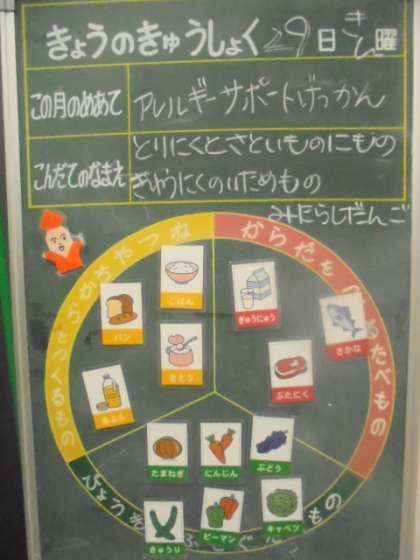 きょうのきゅうしょく 29日 きん曜
この月のめあて
アレルギーサポートげっかん
こんだてのなまえ
とりにくとさといものにもの
ぎゅうにくのいためもの
みたらしだんご
ちからやねつ
となるもの
からだをつくるたべもの
ごはん
ぎゅうにゅう
パン
さとう
さかな
ぶたにく
あぶら
たまねぎ
にんじん
ぶどう
きゅうり
ピーマン
キャベツ